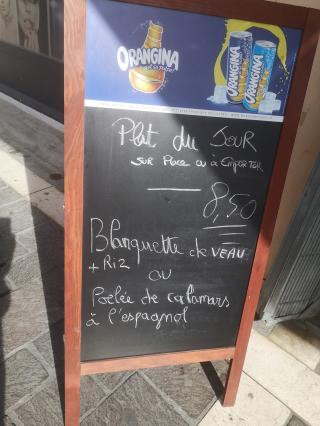 ORANGINA
ORANGINA
ORANGINA
Plat du JouR
SUR Place ou à EmpoRTER
8,50
Blanquette de VEAU
+ Riz
ou
Poêlée de calamars
à l'espagnol